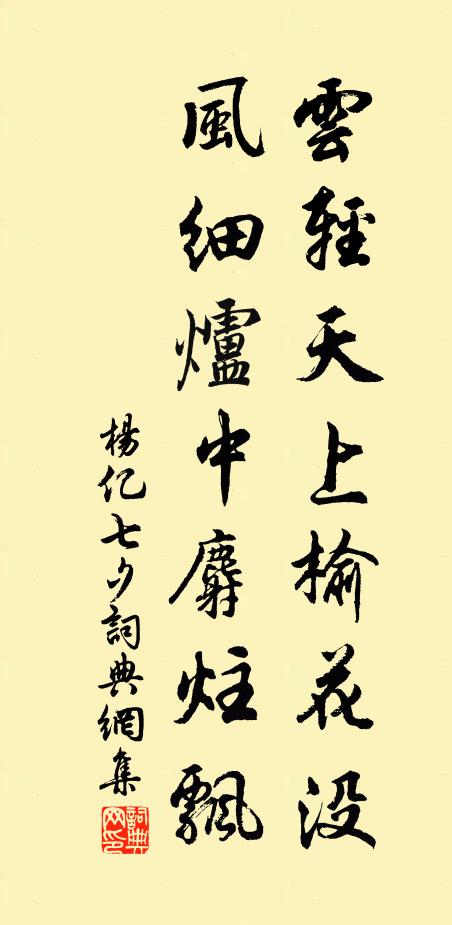 雲輕天上榆花没
風細爐中麝炷飄
楊亿七夕詞典網集
詞典网印